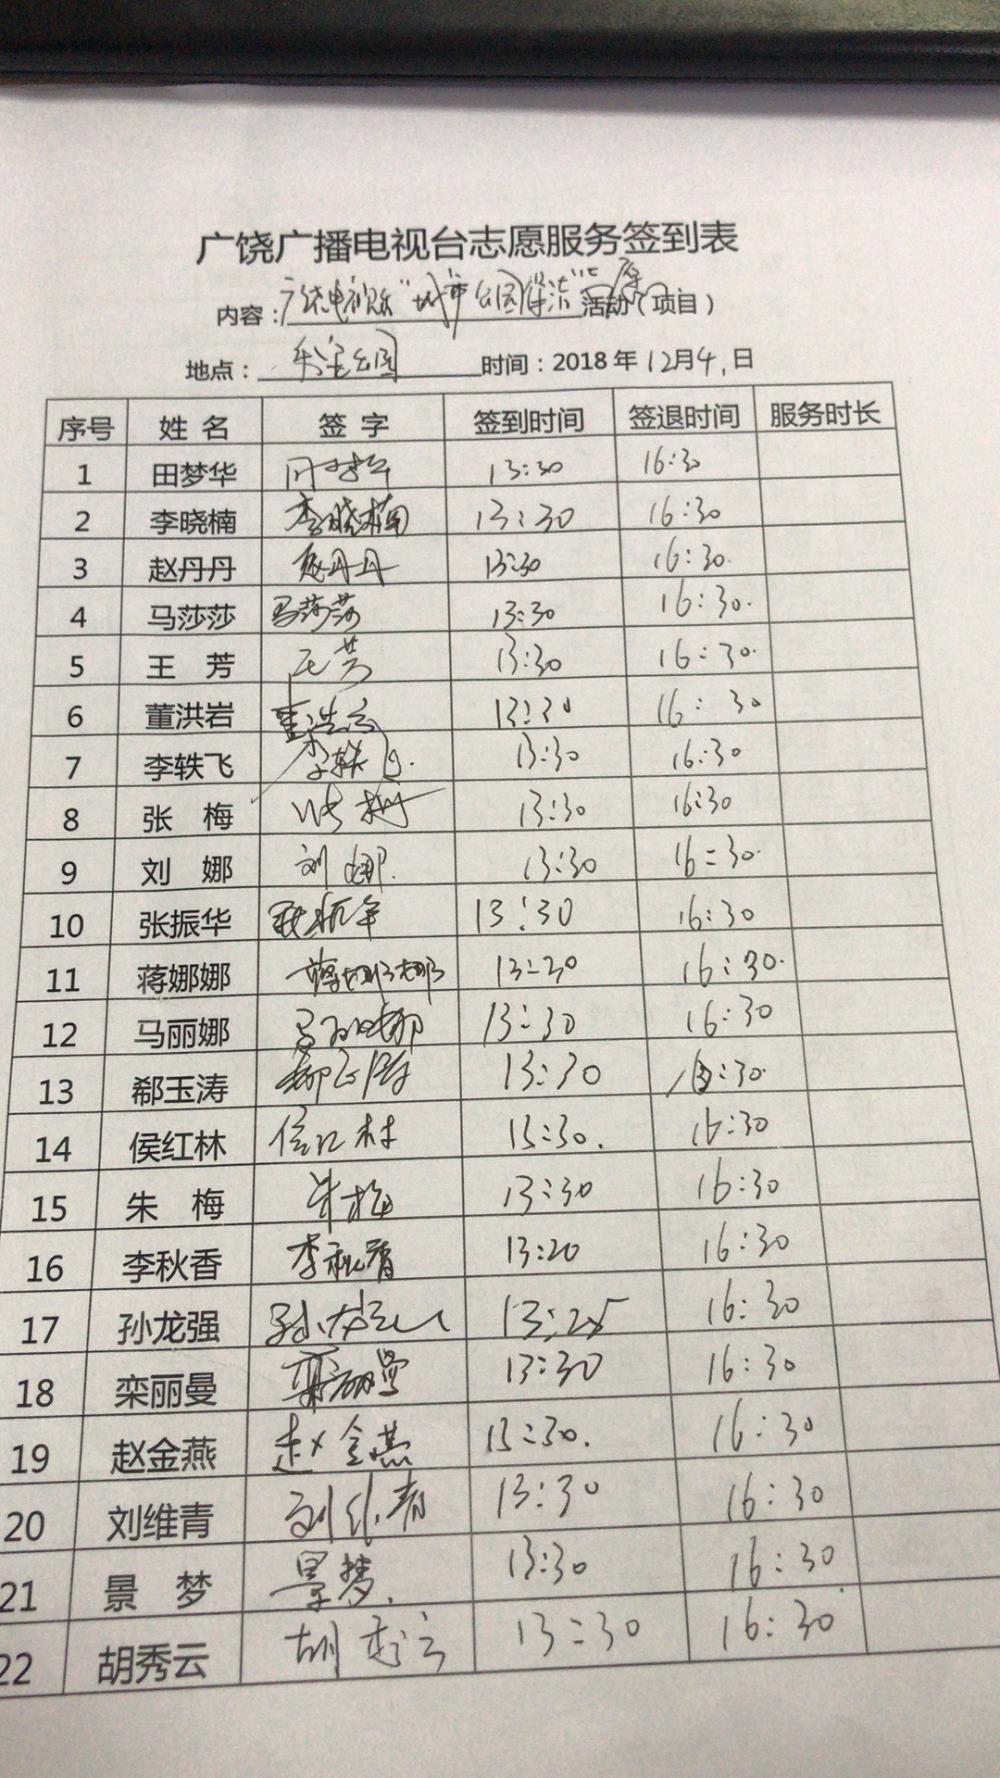 广饶广播电视台志愿服务签到表
内容：广饶电视台"城市公园保洁"活动（项目）
地点：公园 时间：2018 年 12月4日
序号 姓 名 签 字 签到时间 签退时间 服务时长
1 田梦华 田梦华 13:30 16:30
2 李晓楠 李晓楠 13:30 16:30
3 赵丹丹 赵丹丹 13:30 16:30.
4 马莎莎 马莎莎 13:30 16:30.
5 王 芳 王芳 13:30 16:30.
6 董洪岩 董洪岩 13:30 16:30
7 李轶飞 李轶飞. 13:30 16:30
8 张 梅 张梅 13:30 16:30
9 刘 娜 刘娜. 13:30 16:30.
10 张振华 张振华 13:30 16:30
11 蒋娜娜 蒋娜娜 13:30 16:30.
12 马丽娜 马丽娜 13:30 16:30
13 郗玉涛 郗玉涛 13:30 16:30.
14 侯红林 侯红林 13:30. 16:30
15 朱 梅 朱梅 13:30 16:30
16 李秋香 李秋香 13:20 16:30
17 孙龙强 孙龙强 13:25 16:30
18 栾丽曼 栾丽曼 13:30 16:30
19 赵金燕 赵金燕 13:30. 16:30
20 刘维青 刘维青 13:30 16:30
21 景 梦 景梦. 13:30 16:30
22 胡秀云 胡秀云 13:30 16:30